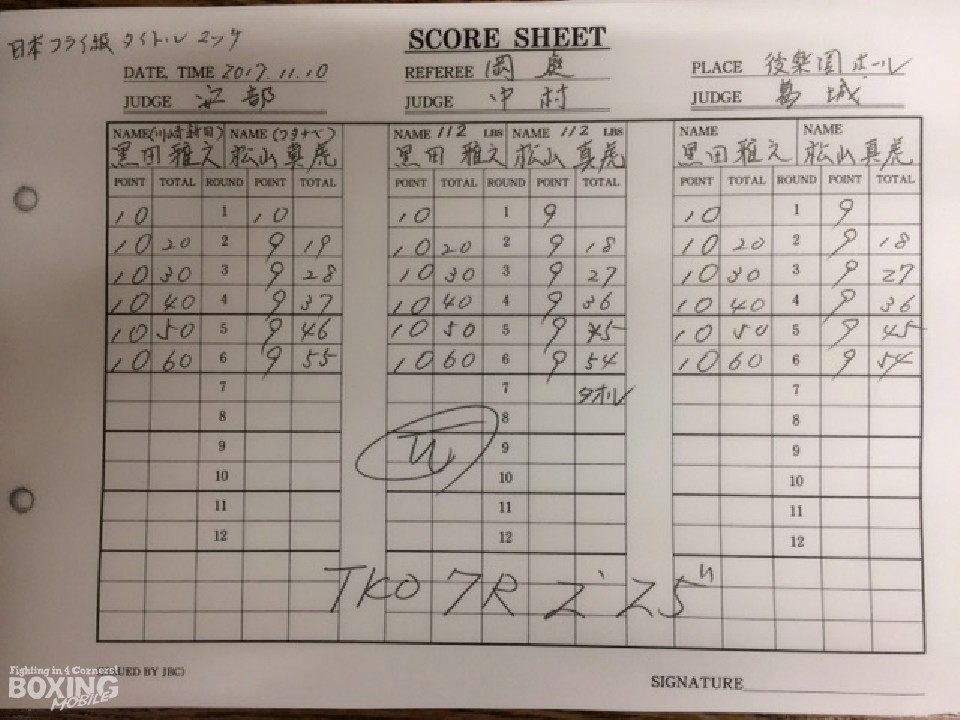 日本フライ級 タイトルマッチ
SCORE SHEET
DATE, TIME 2017.11.10 REFEREE 岡庭 PLACE 後楽園ホール
JUDGE 安部 JUDGE 中村 JUDGE 葛城
NAME (川崎新田) NAME (ワタナベ) NAME 112 LBS NAME 112 LBS NAME NAME
黒田雅之 松山真虎 黒田雅之 松山真虎 黒田雅之 松山真虎
POINT TOTAL ROUND POINT TOTAL POINT TOTAL ROUND POINT TOTAL POINT TOTAL ROUND POINT TOTAL
10 1 10 10 1 9 10 1 9
10 20 2 9 19 10 20 2 9 18 10 20 2 9 18
10 30 3 9 28 10 30 3 9 27 10 30 3 9 27
10 40 4 9 37 10 40 4 9 36 10 40 4 9 36
10 50 5 9 46 10 50 5 9 45 10 50 5 9 45
10 60 6 9 55 10 60 6 9 54 10 60 6 9 54
7 7 タオル 7
8 8 8
9 9 9
10 10 10
11 11 11
12 12 12
TKO 7R 2'25"
ISSUED BY JBC)
SIGNATURE
Fighting in 4 Corners!
BOXING
MOBILE